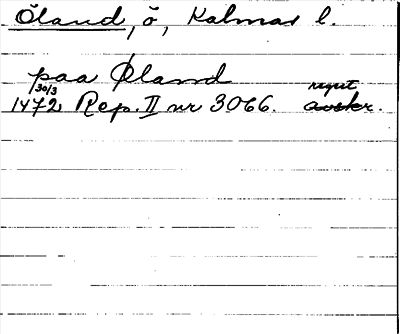 Öland, ö, Kalmar l.
paa Øland
30/3 regest
1472 Rep. II nr 3066. avskr.